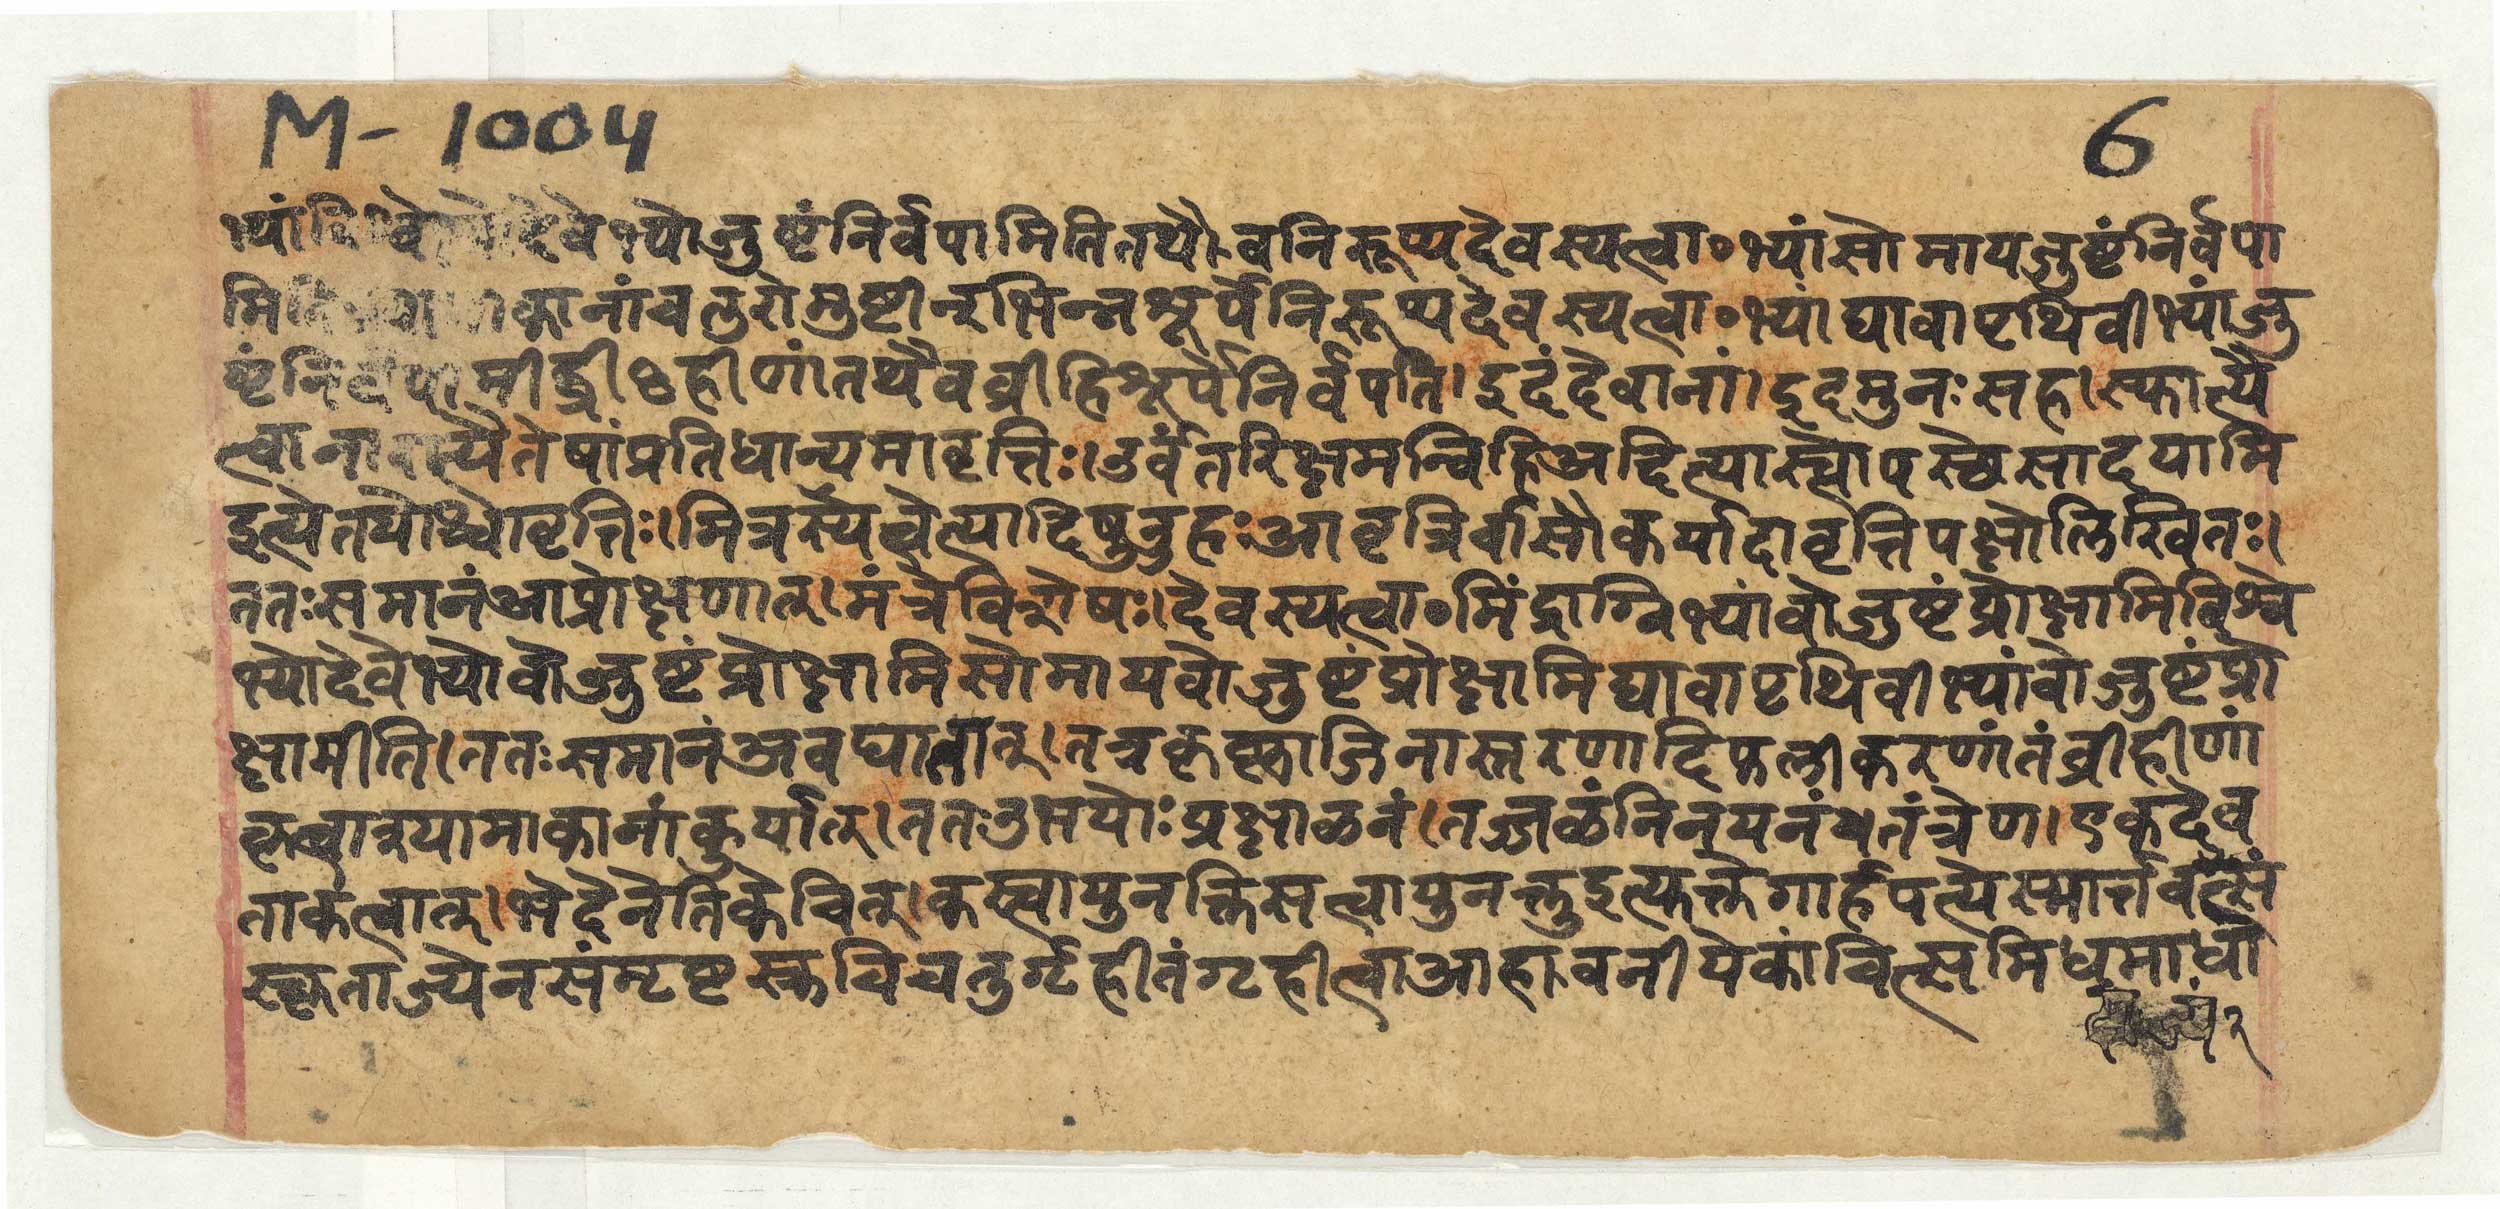 M - 1004
6
भ्यांविश्वेभ्योदेवेभ्योजुष्टंनिर्वपामितितथैवनिरूप्यदेवस्यत्वा०भ्यांसोमायजुष्टंनिर्वपा
मिति कानांचतुरोमुष्टीन्भिन्नश्रूर्पेनिरूप्यदेवस्यत्वा०भ्यांद्यावापृथिवीभ्यांजु
ष्टंनिर्वपामीद्व्रीहीणांतथैवव्रीहिश्रूर्पेनिर्वपति।इदंदेवानां।इदमुनःसह।स्फात्यै
त्वानारात्यैतेषांप्रतिधान्यमावृत्तिः।उर्वंतरिक्षमन्विहिअदित्यास्त्वोपस्छेसादयामि
इत्येतयोश्चावृत्तिः।मित्रस्यत्वेत्यादिषु आवृत्तिर्वासौकर्यादावृत्तिपक्षोलिखितः।
ततःसमानंआप्रोक्षणात्।मंत्रेविशेषः।देवस्यत्वा०मिंद्राग्निभ्यांवोजुष्टंप्रोक्षामिविश्वे
भ्योदेवेभ्योवोजुष्टंप्रोक्षामिसोमायवोजुष्टंप्रोक्षामिद्यावापृथिवीभ्यांवोजुष्टंप्रो
क्षामीति।ततःसमानंअवघातात्।तत्रकृष्णाजिनास्तरणादिफलीकरणांतंव्रीहीणां
कृत्वाश्यामाकानांकुर्यात्।ततउभयोःप्रक्षाळनं।तज्जळंनिनयनंचतंत्रेण।एकदेव
ताकत्वात्।भेदेनेतिकेचित्।कस्त्वायुनक्तिसत्वायुनक्तुइत्यक्तेगार्हपत्येस्मार्त्तवत्सं
स्कृताज्येनसंमृष्टस्रुचिचतुर्गृहीतंगृहीत्वाआहावनीयेकांचित्समिधमाधा